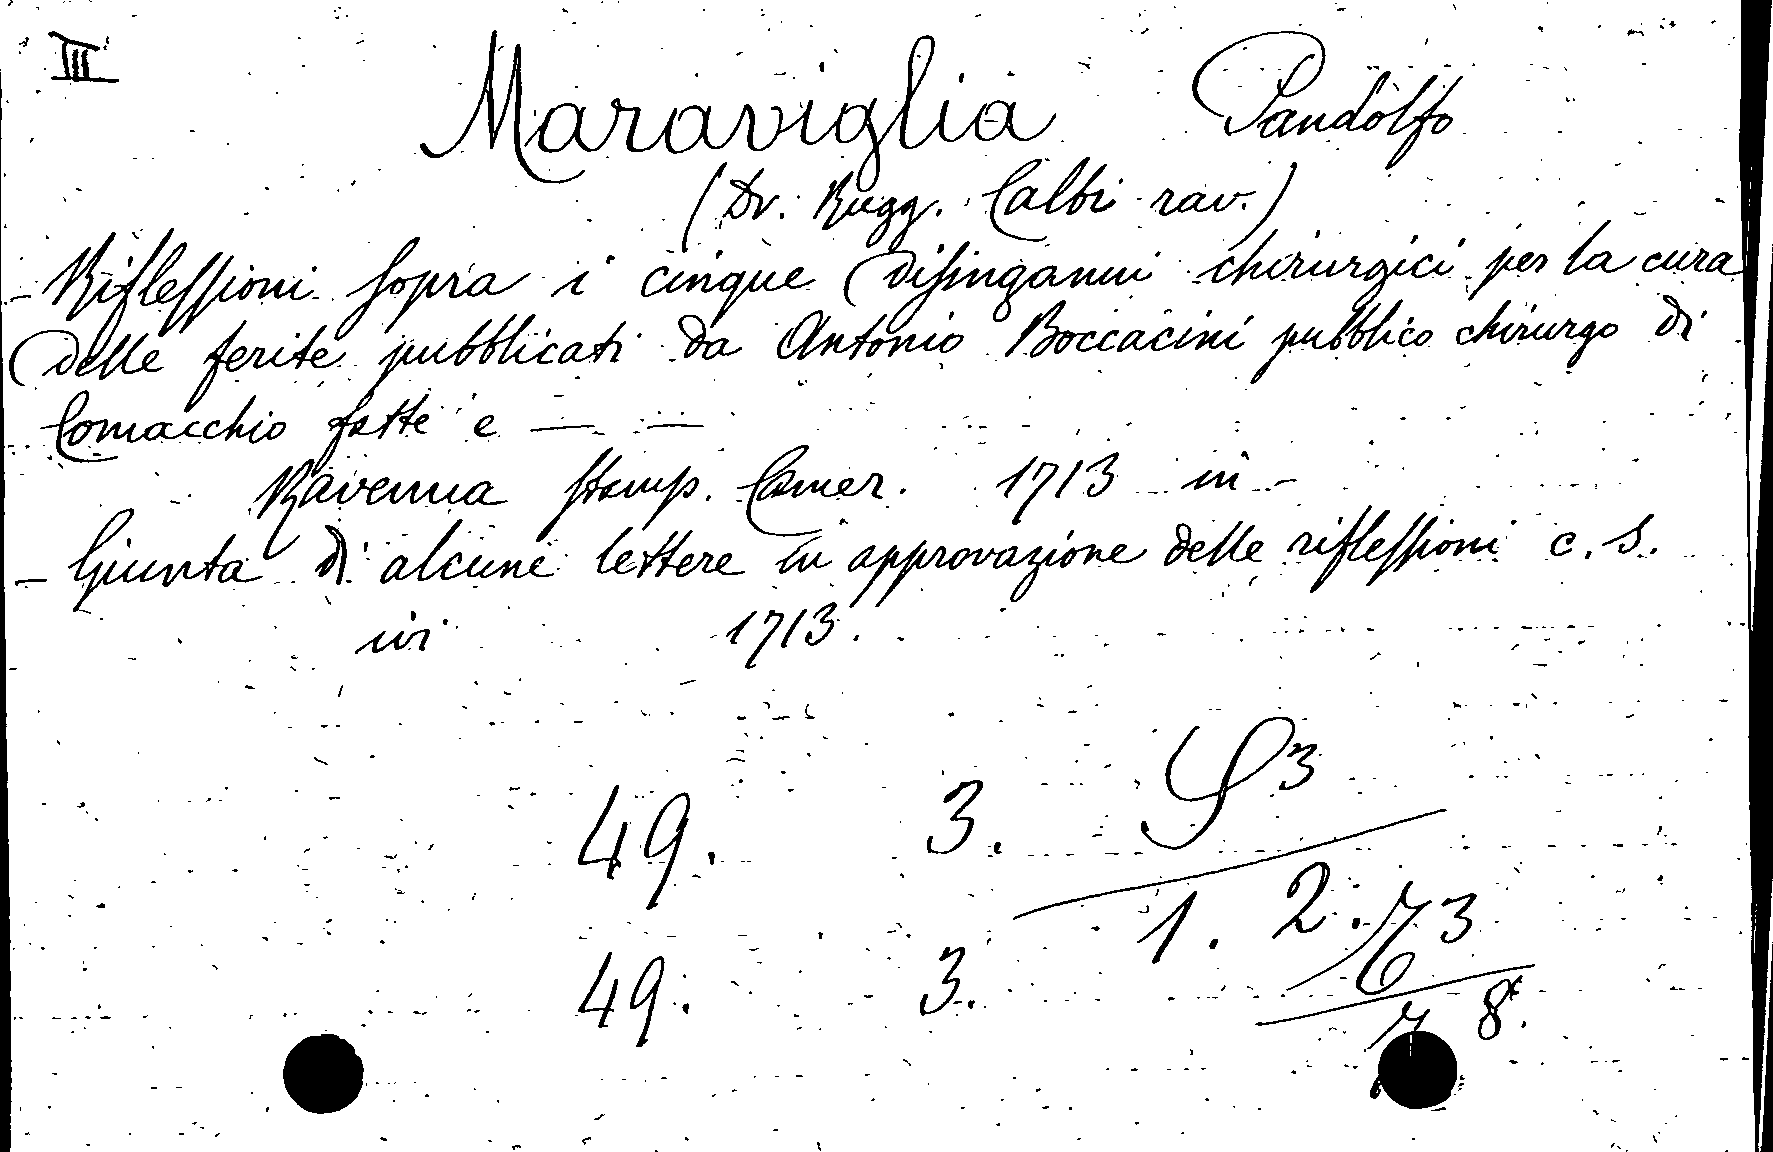 III
Maraviglia Pandolfo
(Dr. Rugg. Calbi rav.)
- Riflessioni sopra i cinque disinganni chirurgici per la cura
delle ferite pubblicati da Antonio Boccacini pubblico chirurgo di
Comacchio fatte e — —
Ravenna stamp. Camer. 1713 in -
- Giunta di alcune lettere in approvazione delle riflessioni c. s.
ivi 1713.
49. 3.
3
1. 2.
3
49. 3.
8.